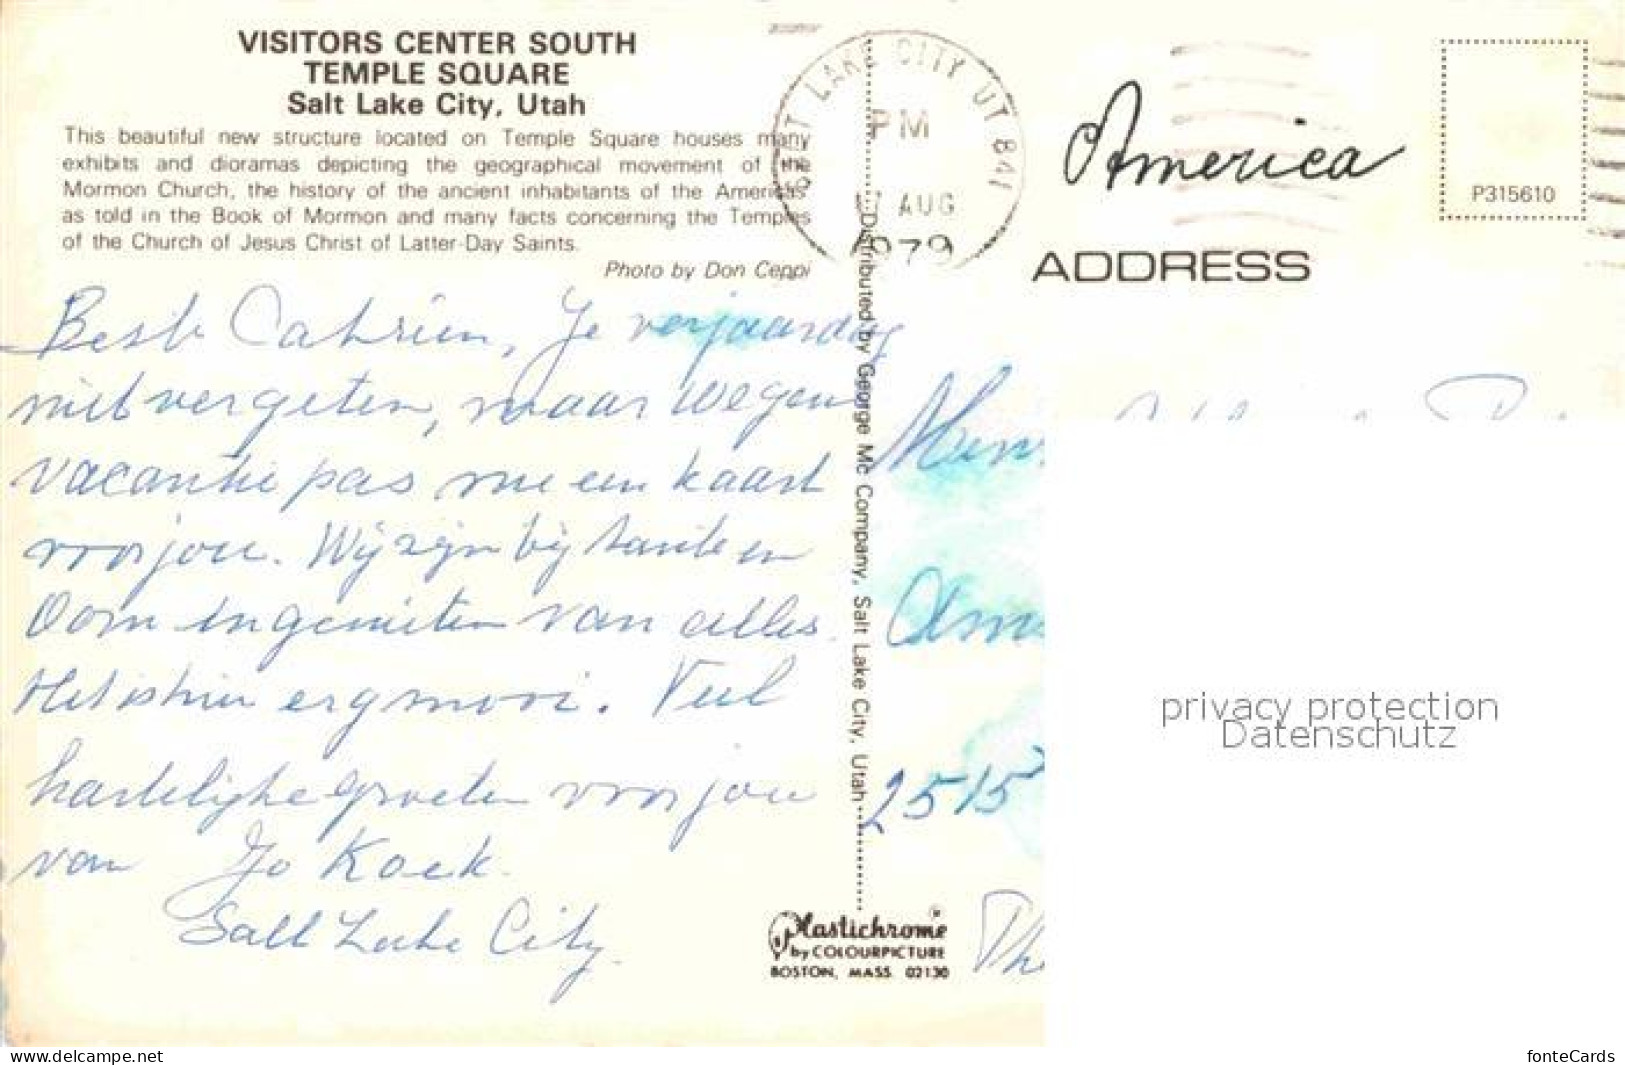 VISITORS CENTER SOUTH
TEMPLE SQUARE
Salt Lake City, Utah
This beautiful new structure located on Temple Square houses many
exhibits and dioramas depicting the geographical movement of the
Mormon Church, the history of the ancient inhabitants of the Americas
as told in the Book of Mormon and many facts concerning the Temples
of the Church of Jesus Christ of Latter-Day Saints.
Photo by Don Ceppi
Beste Cahrien, Je verjaardag
niet vergeten, maar wegens
vacantie pas nu een kaart
voor jou. Wij zijn bij tante en
Oom en genieten van alles.
Het is hier erg mooi. Veel
hartelijke groeten voor jou
van Jo Koek.
Salt Lake City.
LAKE CITY UT 841
PM
AUG
1979
Distributed by George Mc Company, Salt Lake City, Utah
Plastichrome
by COLOURPICTURE
BOSTON, MASS. 02130
America
P315610
ADDRESS
2515
privacy protection
Datenschutz
www.delcampe.net
fonteCards